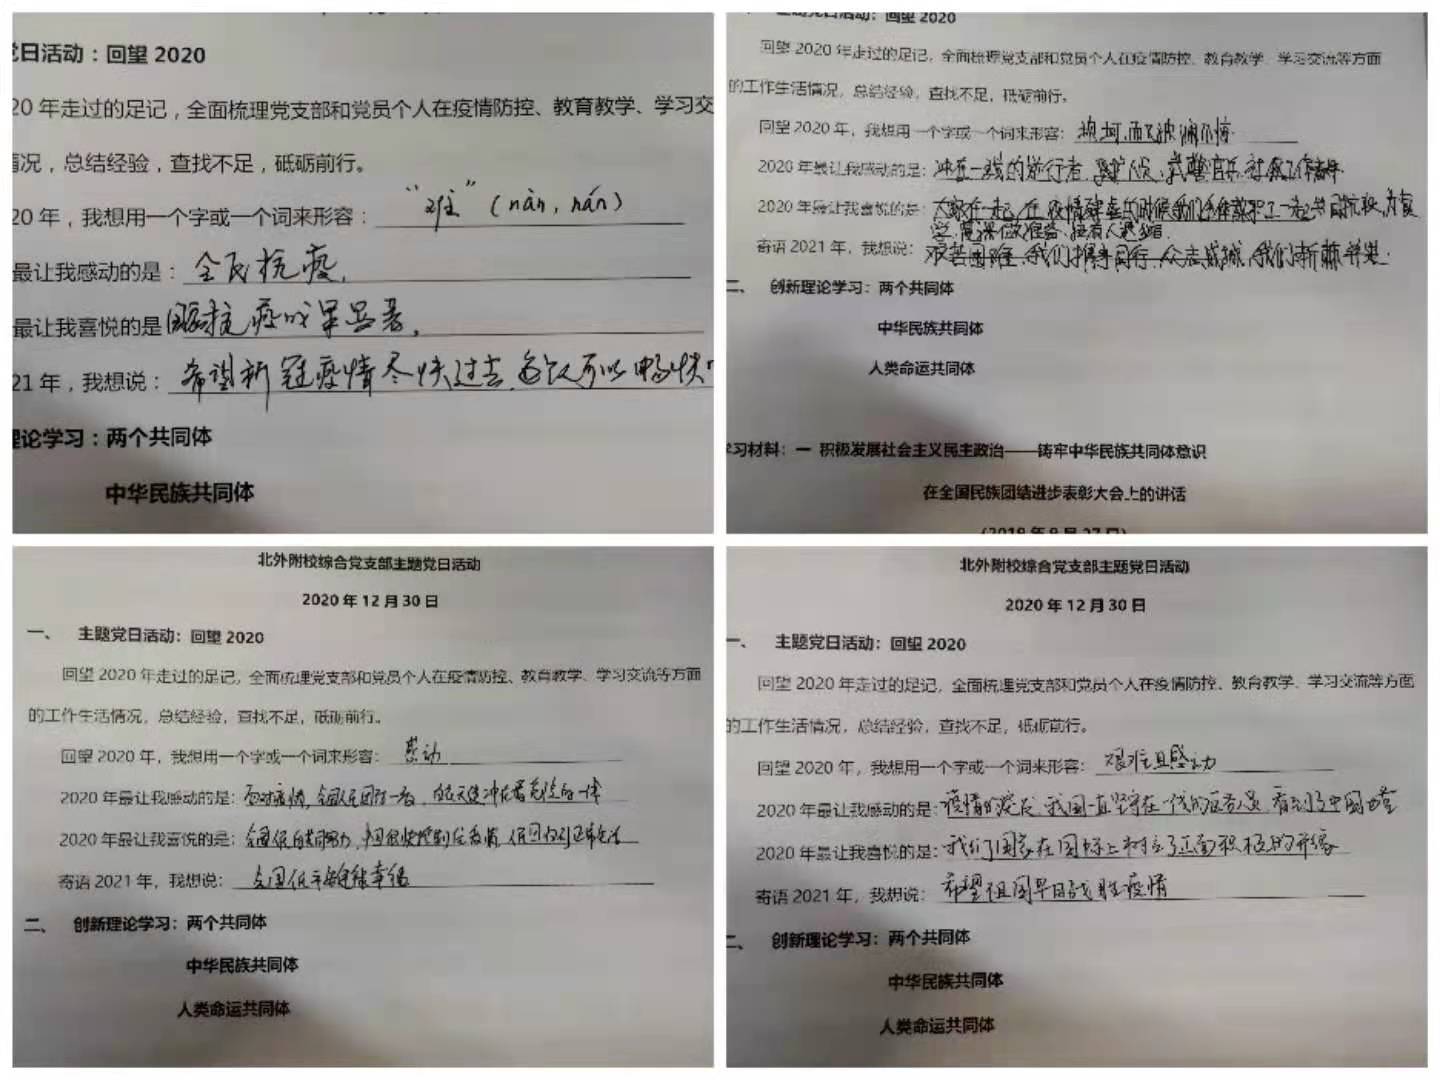 党日活动：回望 2020
20 年走过的足记，全面梳理党支部和党员个人在疫情防控、教育教学、学习交
情况，总结经验，查找不足，砥砺前行。
20 年，我想用一个字或一个词来形容： “难”（nàn，nán）
最让我感动的是： 全民抗疫，
最让我喜悦的是 国家抗疫成果显著，
21 年，我想说： 希望新冠疫情尽快过去，每次可以畅快
理论学习：两个共同体
中华民族共同体
主题党日活动：回望 2020
回望 2020 年走过的足记，全面梳理党支部和党员个人在疫情防控、教育教学、学习交流等方面
的工作生活情况，总结经验，查找不足，砥砺前行。
回望 2020 年，我想用一个字或一个词来形容： 坎坷而又波澜
2020 年最让我感动的是： 冲在一线的逆行者、医护人员、武警官兵、社区工作者
2020 年最让我喜悦的是： 大家在一起，在疫情肆虐的时候我们一起共同抗疫
寄语 2021 年，我想说： 艰苦困难，我们携手同行，众志成城，我们斩荆
二、 创新理论学习：两个共同体
中华民族共同体
人类命运共同体
学习材料：一 积极发展社会主义民主政治——铸牢中华民族共同体意识
在全国民族团结进步表彰大会上的讲话
（2019 年 9 月 27 日）
北外附校综合党支部主题党日活动
2020 年 12 月 30 日
一、 主题党日活动：回望 2020
回望 2020 年走过的足记，全面梳理党支部和党员个人在疫情防控、教育教学、学习交流等方面
的工作生活情况，总结经验，查找不足，砥砺前行。
回望 2020 年，我想用一个字或一个词来形容： 感动
2020 年最让我感动的是： 面对疫情，全国人民团结一致，白衣天使冲在最危险的一线
2020 年最让我喜悦的是： 全国人民的共同努力，中国很快控制住疫情，人民回归到正常生活
寄语 2021 年，我想说： 全国人民平安健康幸福
二、 创新理论学习：两个共同体
中华民族共同体
人类命运共同体
北外附校综合党支部主题党日活动
2020 年 12 月 30 日
一、 主题党日活动：回望 2020
回望 2020 年走过的足记，全面梳理党支部和党员个人在疫情防控、教育教学、学习交流等方面
的工作生活情况，总结经验，查找不足，砥砺前行。
回望 2020 年，我想用一个字或一个词来形容： 艰难且感动
2020 年最让我感动的是： 疫情的蔓延，我国一直坚守在一线的医务人员，看到了中国力量
2020 年最让我喜悦的是： 我们国家在国际上树立了正面积极的形象
寄语 2021 年，我想说： 希望祖国早日战胜疫情
二、 创新理论学习：两个共同体
中华民族共同体
人类命运共同体